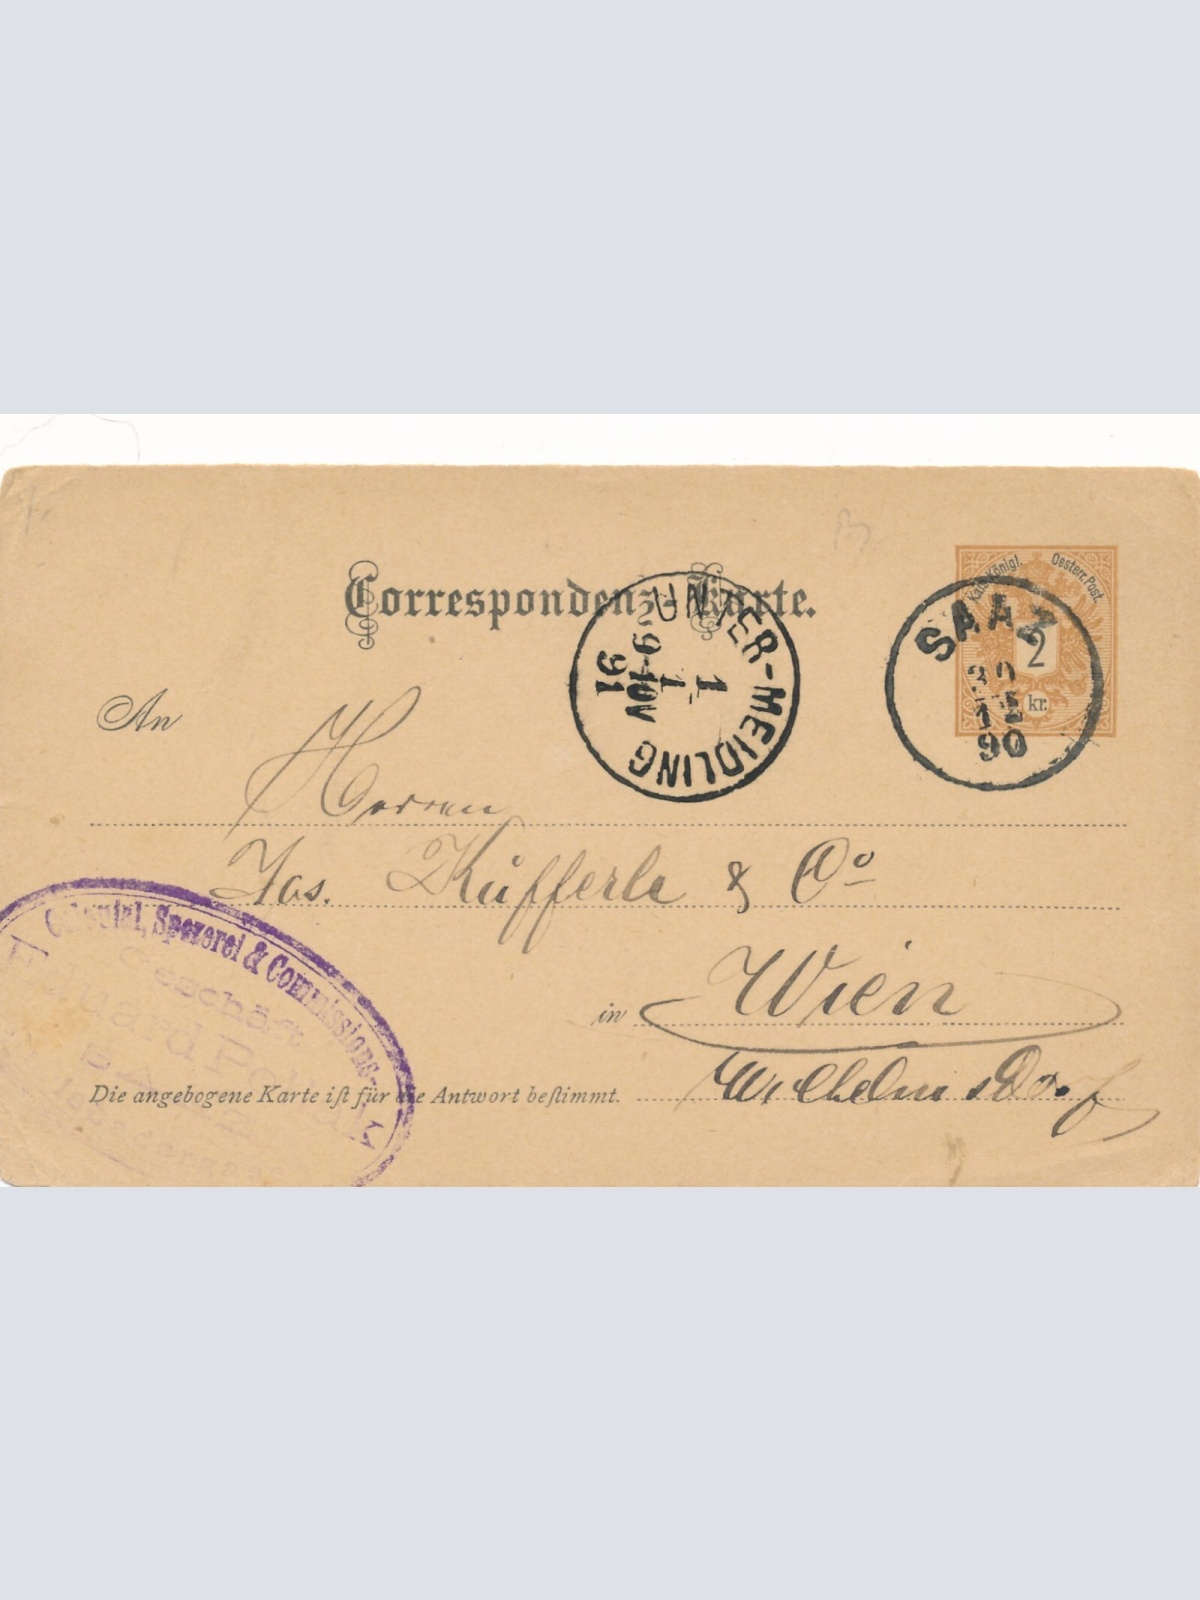 Correspondenz-Karte.
Kais. Königl. Oesterr. Post.
2
kr.
SAAZ
90
UNTER-MEIDLING
1
1
91
9-10V
An
Herren
Jos. Küfferle & Co
in Wien
Wilhelmsdorf
Die angebogene Karte ist für die Antwort bestimmt.
Colonial, Spezerei & Commissions-
Geschäft